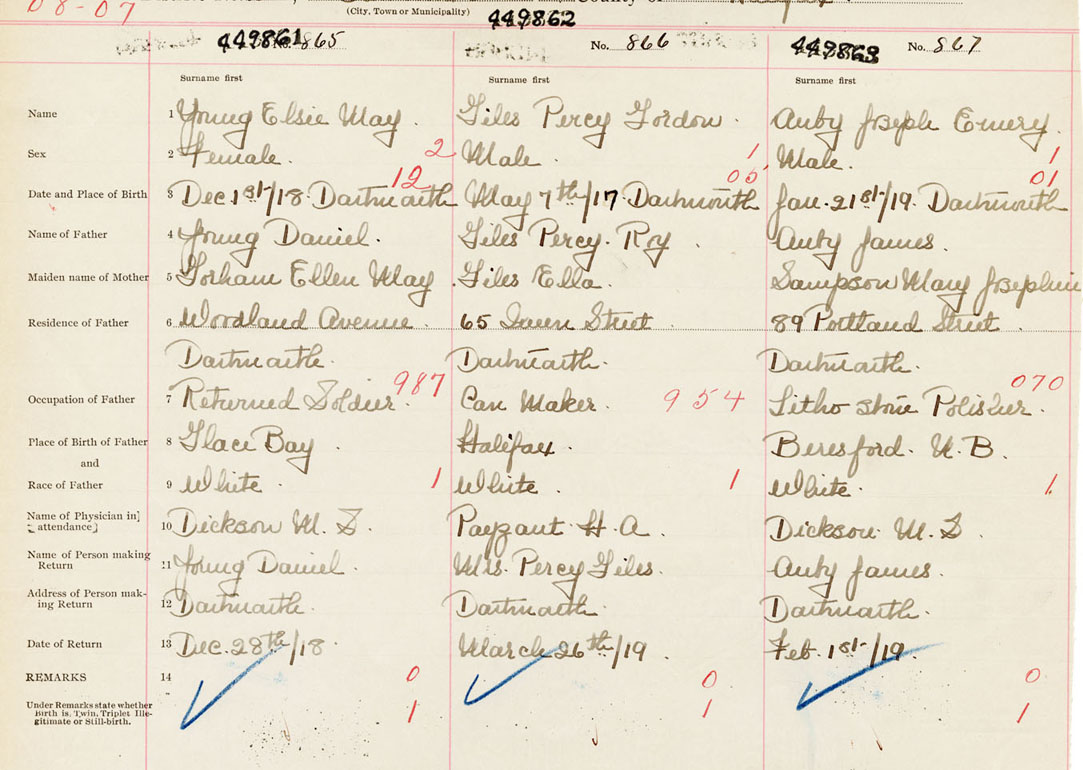 08-07
(City, Town or Municipality)
449861 No. 865 449862 No. 866 449863 No. 867
Surname first Surname first Surname first
Name 1 Young Elsie May. Giles Percy Gordon. Auby Joseph Emery.
Sex 2 Female. 2 Male. 1 Male. 1
12 05 01
Date and Place of Birth 3 Dec 1st/18. Dartmouth May 7th/17. Dartmouth Jan. 21st/19. Dartmouth
Name of Father 4 Young Daniel. Giles Percy. Roy. Auby James.
Maiden name of Mother 5 Gorham Ellen May. Giles Ella. Sampson Mary Josephine
Residence of Father 6 Woodland Avenue. 65 Queen Street. 89 Portland Street.
Dartmouth. Dartmouth. Dartmouth.
987 954 070
Occupation of Father 7 Returned Soldier. Can Maker. Litho stone Polisher.
Place of Birth of Father 8 Glace Bay. Halifax. Beresford. N. B.
and
Race of Father 9 White. 1 White. 1 White. 1
Name of Physician in] attendance] 10 Dickson M. S. Payzant H. A. Dickson. M. S.
Name of Person making Return 11 Young Daniel. Mrs. Percy Giles. Auby James.
Address of Person mak-ing Return 12 Dartmouth. Dartmouth. Dartmouth.
Date of Return 13 Dec. 28th/18. March 26th/19. Feb. 1st/19.
REMARKS 14 0 0 0
Under Remarks state whether
Birth is, Twin, Triplet Ille-
gitimate or Still-birth. 1 1 1